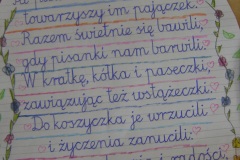 towarzyszy im pajączek.
Razem świetnie się bawili,
gdy pisanki nam barwili.
W kratkę, kółka i paseczki,
zawiązując też wstążeczki.
Do koszyczka je wrzucili
i życzenia zanucili:
i radości